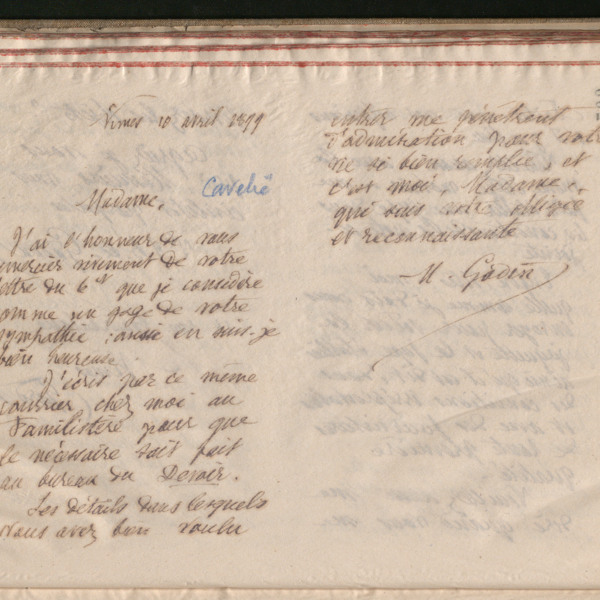 Nîmes 10 avril 1899
Cavelié
Madame,
J'ai l'honneur de vous
remercier vivement de votre
lettre du 6 ct que je considère
comme un gage de votre
sympathie ; aussi en suis-je
bien heureuse.
J'écris par ce même
courrier chez moi au
Familistère pour que
le nécessaire soit fait
au bureau du Devoir.
Les détails dans lesquels
vous avez bien voulu
entrer me pénètrent
d'admiration pour votre
vie si bien remplie, et
c'est moi, Madame,
qui suis votre obligée
et reconnaissante
M. Godin